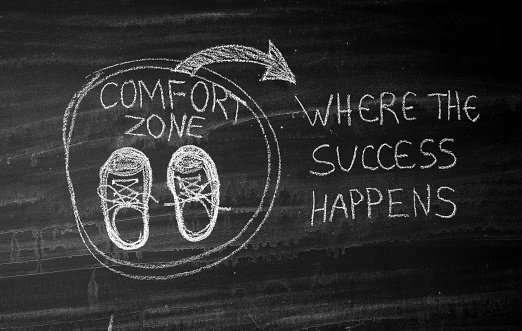 COMFORT
ZONE
WHERE THE
SUCCESS
HAPPENS